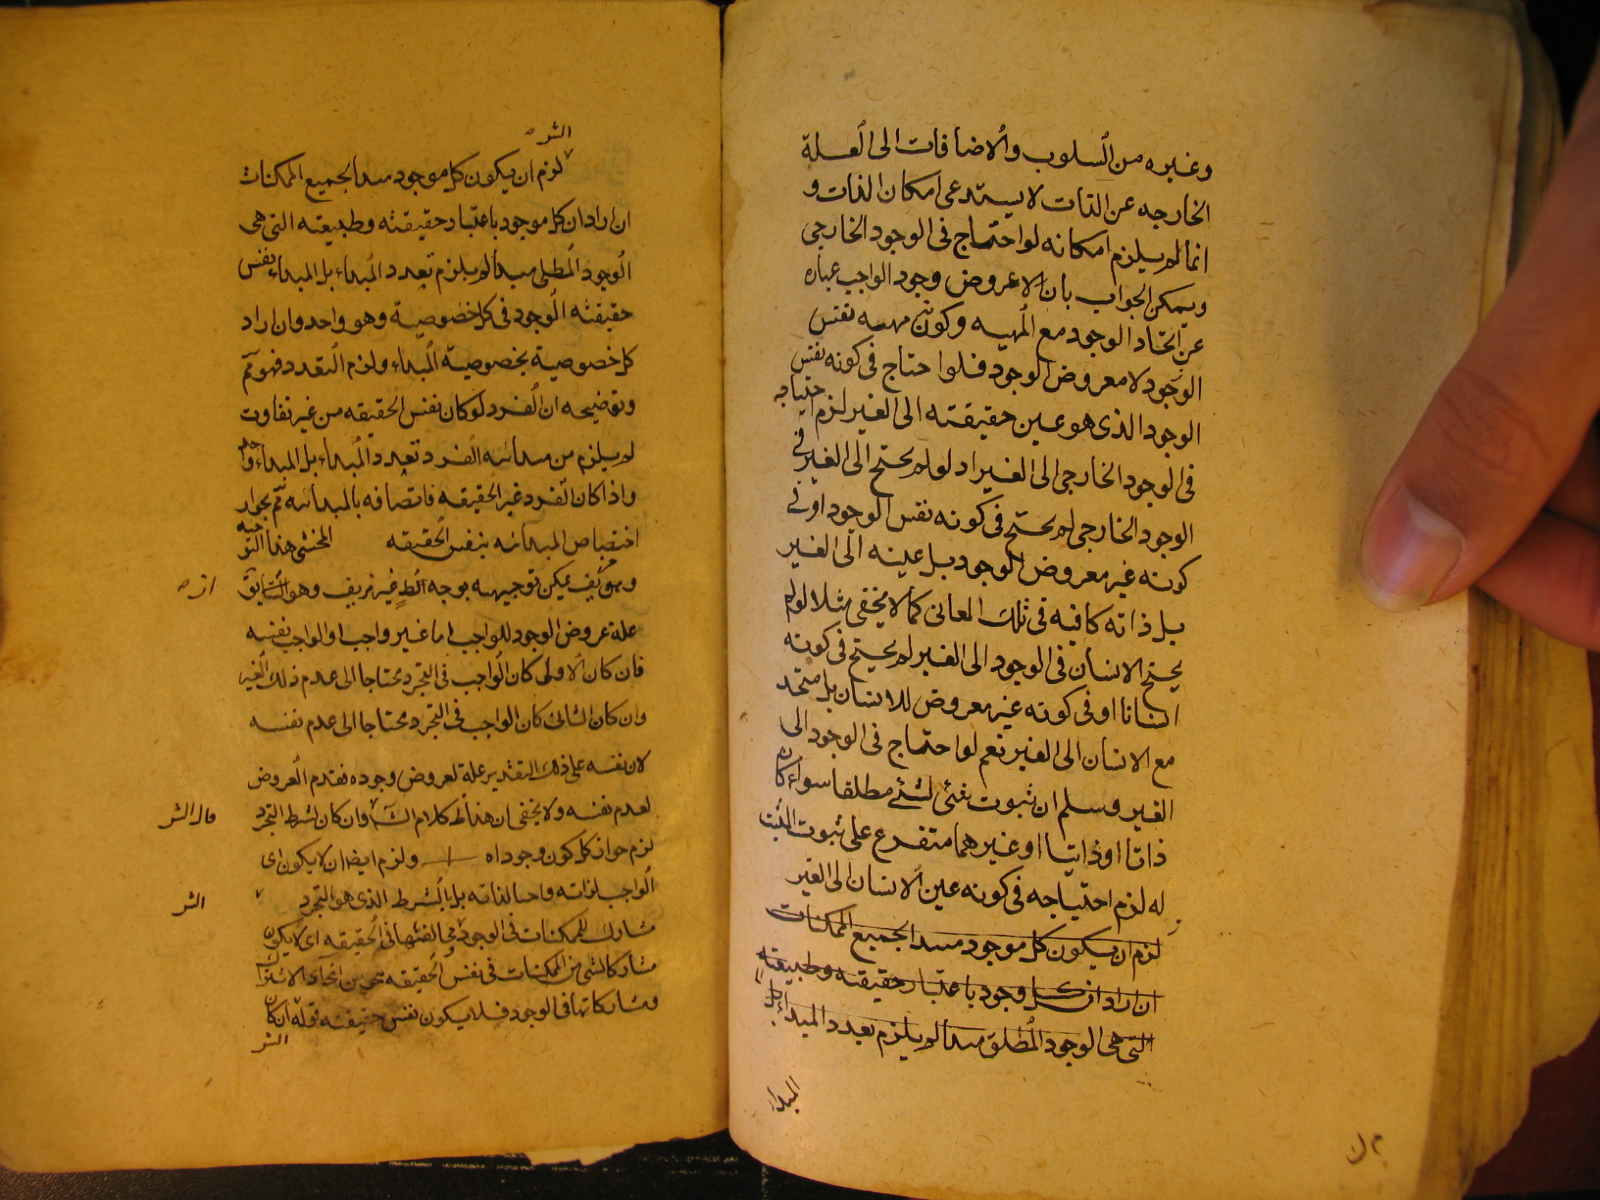 وغيره من السلوب والاضافات الى العلة
الخارجه عن الذات لا يستدعى امكان الذات و
انما لم يلزم امكانه لو احتاج فى الوجود الخارجى
ويمكن الجواب بان لا عروض وجود الواجب عباره
عن اتحاد الوجود مع المهيه وكون مهيه نفس
الوجود لا معروض الوجود فلو احتاج فى كونه نفس
الوجود الذى هو عين حقيقته الى الغير لزم احتياجه
فى الوجود الخارجى الى الغير اذ لو لم يحتج الى الغير فى
الوجود الخارجى لم يحتج فى كونه نفس الوجود او فى
كونه غير معروض الوجود بل عينه الى الغير
بل ذاته كافيه فى تلك المعانى كما لا يخفى مثلا لو لم
يحتج الانسان فى الوجود الى الغير لم يحتج فى كونه
انسانا او فى كونه غير معروض للانسان بل متحد
مع الانسان الى الغير نعم لو احتاج فى الوجود الى
الغير وسلم ان ثبوت شئ لشئ مطلقا سواء كان
ذاتا او ذاتيا او غيرهما متفرع على ثبوت المثبت
له لزم احتياجه فى كونه عين الانسان الى الغير
لزم ان يكون كل موجود مبدا لجميع الممكنات
ان اراد ان كل وجود باعتبار حقيقته وطبيعته
التى هى الوجود المطلق مبدا لم يلزم تعدد المبداء بل
المبداء
الشر
لزم ان يكون كل موجود مبدا لجميع الممكنات
ان اراد ان كل موجود باعتبار حقيقته وطبيعته التى هى
الوجود المطلق مبدا لم يلزم تعدد المبداء بل المبداء نفس
حقيقته الوجود فى كل خصوصية وهو واحد وان اراد
كل خصوصية بخصوصية المبداء ولزم التعدد فهو مم
وتوضيحه ان الفرد لو كان نفس الحقيقه من غير تفاوت
لم يلزم من مبدائيه الفرد تعدد المبداء بل المبداء واحد
واذا كان الفرد غير الحقيقه فاتصافه بالمبدائيه مم بجواز
اختصاص المبدائيه بنفس الحقيقه المحشى هذا التوجيه
يمكن توجيهه بوجه غير نزيف وهو
علة عروض الوجود للواجب اما غير واجب او الواجب نفسه
فان كان الاولى كان الواجب فى التجرد محتاجا الى عدم ذلك الغير
وان كان الثانى كان الواجب فى التجرد محتاجا الى عدم نفسه
لان نفسه على ذلك التقدير علة لعروض وجوده فقدم العروض
لعدم نفسه ولا يخفى ان هذا كلام وان كان بشرط التجرد
قال الشر
لزم جواز كل كون وجوداه ولزم ايضا ان لا يكون اى
الواجب لذاته واجبا لذاته بل بالشرط الذى هو التجرد
الشر
مشارك للممكنات فى الوجود ومخالفتها فى الحقيقه اى لا يكون
مشاركا لشئ من الممكنات فى نفس الحقيقه اتحاد الاشتراك
ومشاركاتها فى الوجود فلا يكون نفس حقيقته قوله ان كان
الشر